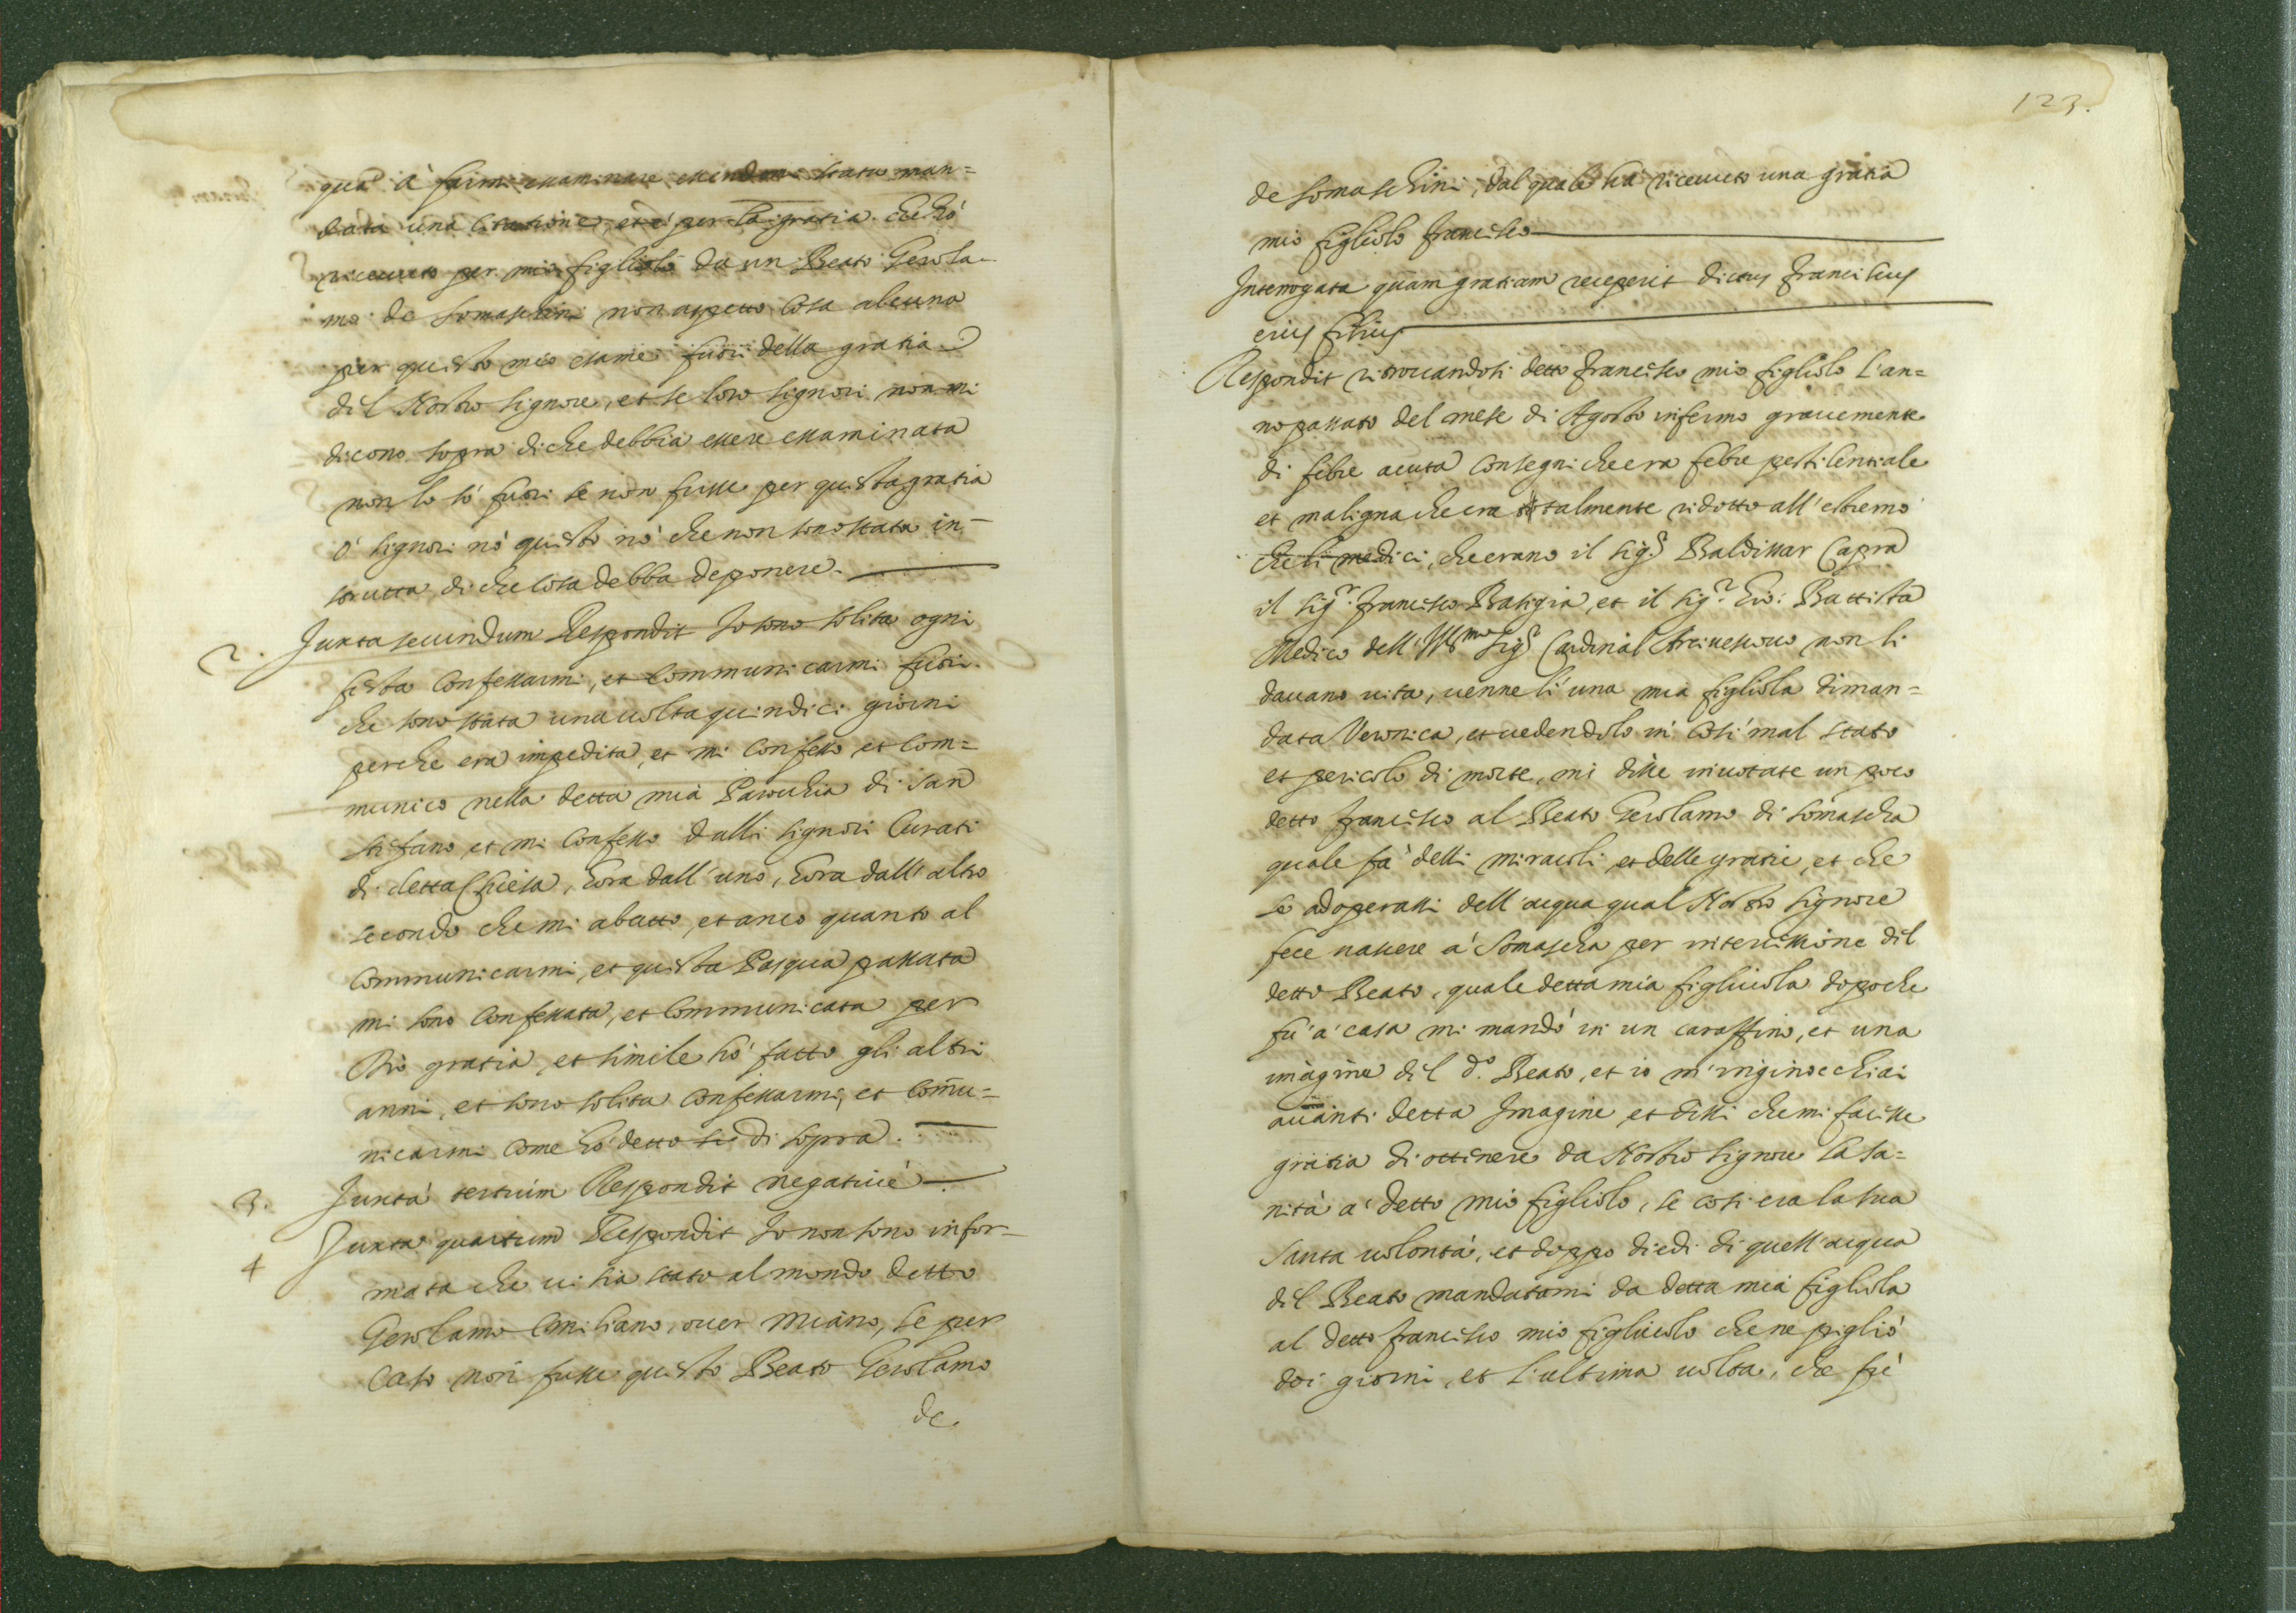 qua à farmi essaminare essendomi stata man=
data una citatione, et è per la gratia che hò
riceuuto per mio figliolo da un Beato Gerola-
mo de Somaschini non aspetto cosa alcuna
per questo mio esame fuori della gratia
del Nostro Signore, et se loro Signori non mi
dicono sopra di che debbia essere essaminata
non lo sò fuori se non fusse per questa gratia
ò Signori nò questo nò che non sono stata in-
strutta di che cosa debba deponere.
2. Juxta secundum Respondit Io sono solita ogni
festa Confessarmi, et Communicarmi fuori
che sono stata una uolta quindici giorni
perche era impedita, et mi Confesso, et Com=
munico nella detta mia Parochia di San
Stefano, et mi Confesso dalli Signori Curati
di detta Chiesa, hora dall'uno, hora dall'altro
secondo che mi abatto, et anco quanto al
Communicarmi, et questa Pasqua passata
mi sono Confessata, et Communicata per
Dio gratia, et simile hò fatto gli altri
anni, et sono solita Confessarmi, et Com̃u=
nicarmi Come hò detto di sopra.
3. Juxta tertium Respondit negatiuè
4 Juxta quartum Respondit Io non sono infor-
mata che ui sia stato al mondo detto
Gerolamo Emiliano, ouer Miano, se per
Caso non fusse questo Beato Gerolamo
de
123.
de Somaschini, dal quale hà riceuuto una gratia
mio figliolo Francesco
Interrogata quam gratiam receperit dictus Franciscus
eius filius
Respondit ritrouandosi detto Francesco mio figliolo l'an=
no passato del mese di Agosto infermo grauemente
di febre acuta con segni che era febre pestilentiale
et maligna che era totalmente ridotto all'estremo
che li medici, che erano il Sig.r Baldissar Capra
il Sig.r Francesco Basigia, et il Sig.r Gio: Battista
Medico dell'Ill.mo Sig.r Cardinal Arciuescouo non li
dauano uita, uenne lì una mia figliola diman=
data Veronica, et uedendolo in così mal stato
et pericolo di morte, mi disse inuotate un poco
detto Francesco al Beato Gerolamo di Somascha
quale fa delli miracoli, et delle gratie, et che
se adoperassi dell'acqua qual Nostro Signore
fece nascere à Somascha per intercessione dil
detto Beato, quale detta mia figliuola dopo che
fù à casa mi mandò in un caraffino, et una
imagine dil d.o Beato, et io m'inginocchiai
auanti detta Imagine, et dissi che mi facesse
gratia di ottinere da Nostro Signore la sa=
nità à detto mio figliolo, se così era la sua
Santa uolontà, et doppo diedi di quell'acqua
dil Beato mandatami da detta mia figliola
al detto Francesco mio figliuolo che ne pigliò
doi giorni, et l'ultima uolta, che fù